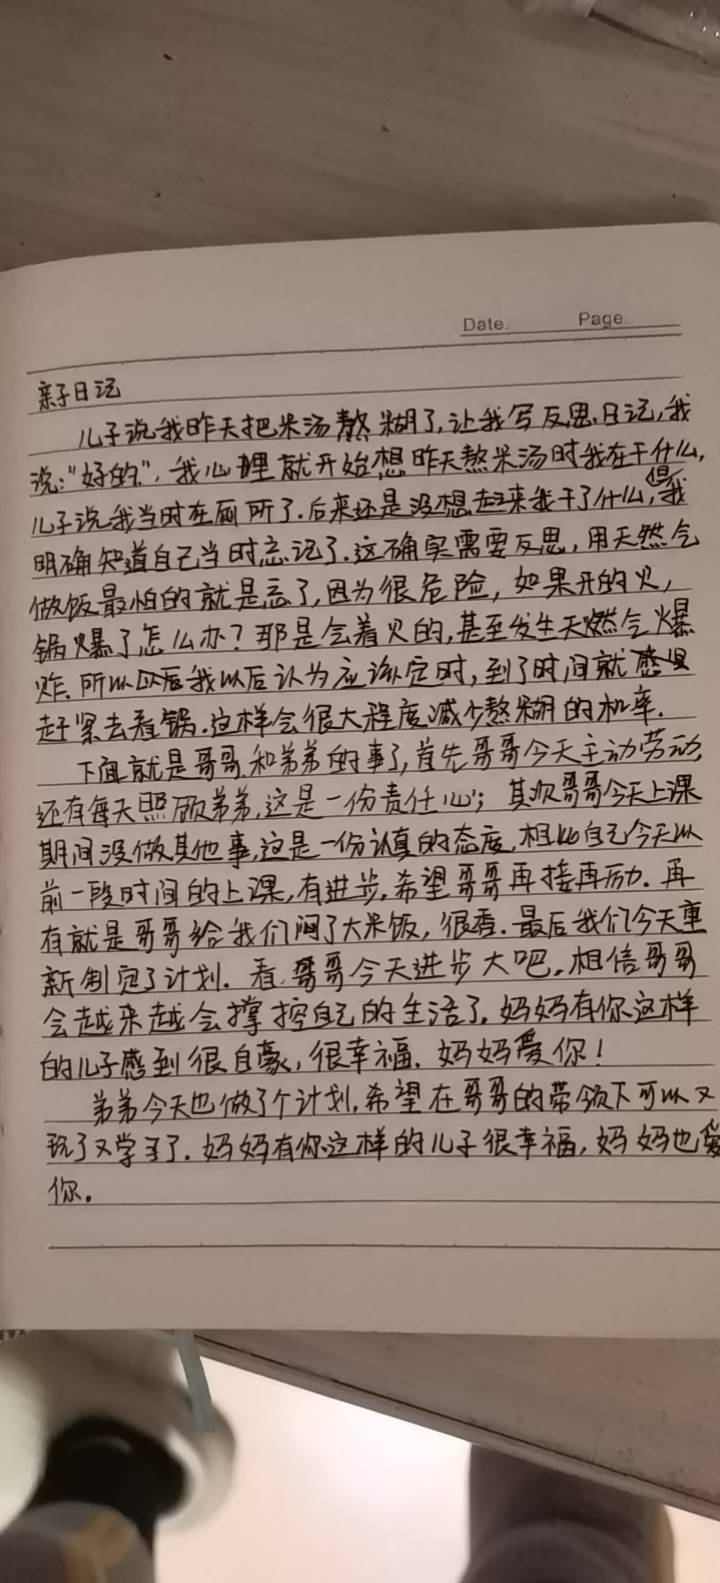 Date. Page.
亲子日记
儿子说我昨天把米汤熬糊了,让我写反思日记,我
说:"好的",我心里就开始想昨天熬米汤时我在干什么,
儿子说我当时在厕所了.后来还是没想起来我干了什么,但我
明确知道自己当时忘记了.这确实需要反思,用天然气
做饭最怕的就是忘了,因为很危险,如果开的火,
锅爆了怎么办?那是会着火的,甚至发生天燃气爆
炸.所以以后我以后认为应该定时,到了时间就
赶紧去看锅.这样会很大程度减少熬糊的机率.
下面就是哥哥和弟弟的事了,首先哥哥今天主动劳动,
还有每天照顾弟弟,这是一份责任心;其次哥哥今天上课
期间没做其他事,这是一份认真的态度,相比自己今天以
前一段时间的上课,有进步,希望哥哥再接再励.再
有就是哥哥给我们闷了大米饭,很香.最后我们今天重
新制定了计划.看,哥哥今天进步大吧.相信哥哥
会越来越会撑控自己的生活了.妈妈有你这样
的儿子感到很自豪,很幸福.妈妈爱你!
弟弟今天也做了个计划,希望在哥哥的带领下可以又
玩了又学习了.妈妈有你这样的儿子很幸福,妈妈也爱
你。